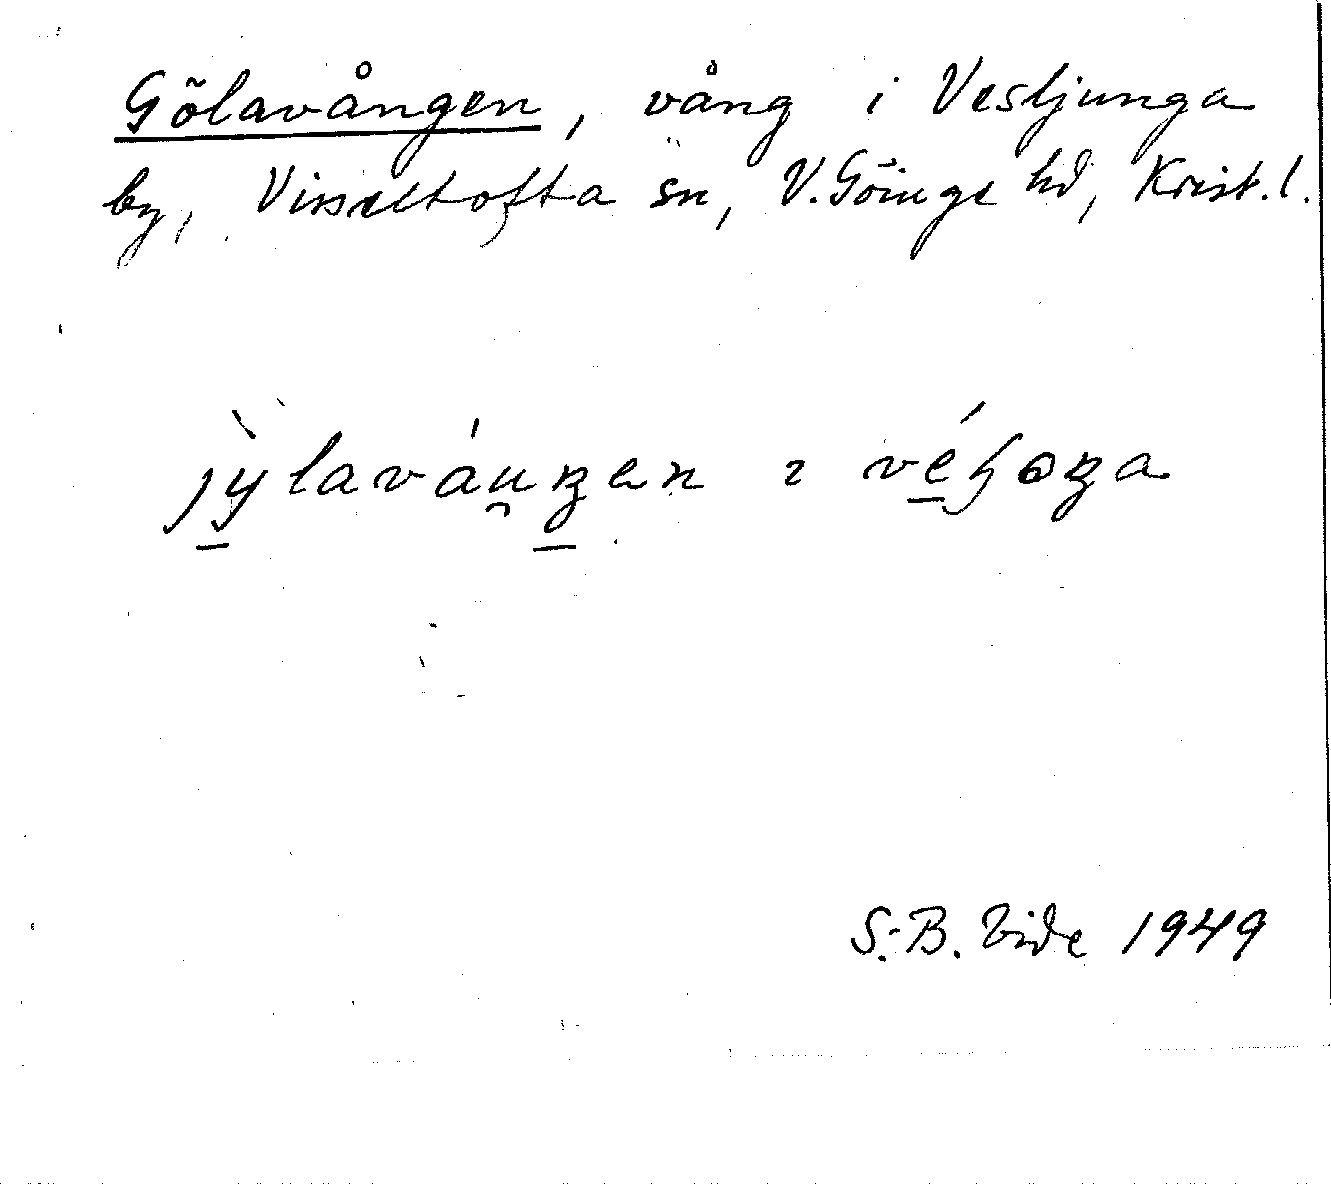 Gölavången, vång i Vesljunga
by, Visseltofta sn, V. Göinge hd, Krist. l.
jỳlaváu̯ŋen ɪ véʃɵŋa
S.-B. Vide 1949